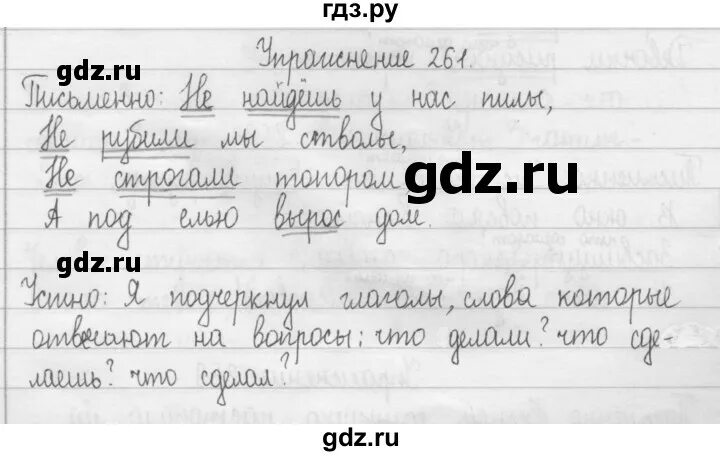 гдз.ру
Упражнение 261.
gdz.ru
gdz.ru
Письменно: Не найдёшь у нас пилы,
Не рубили мы стволы,
Не строгали топором
gdz.ru
А под елью вырос дом.
gdz.ru
gdz.ru
Устно: Я подчеркнул глаголы, слова которые
отвечают на вопросы: что делали? что сде-
лаешь? что сделал?
gdz.ru
gdz.ru